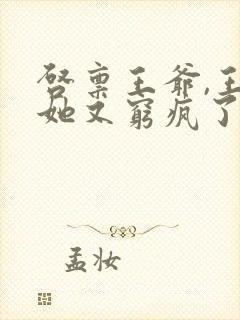 启禀王爷,王
她又窮疯了
孟妆